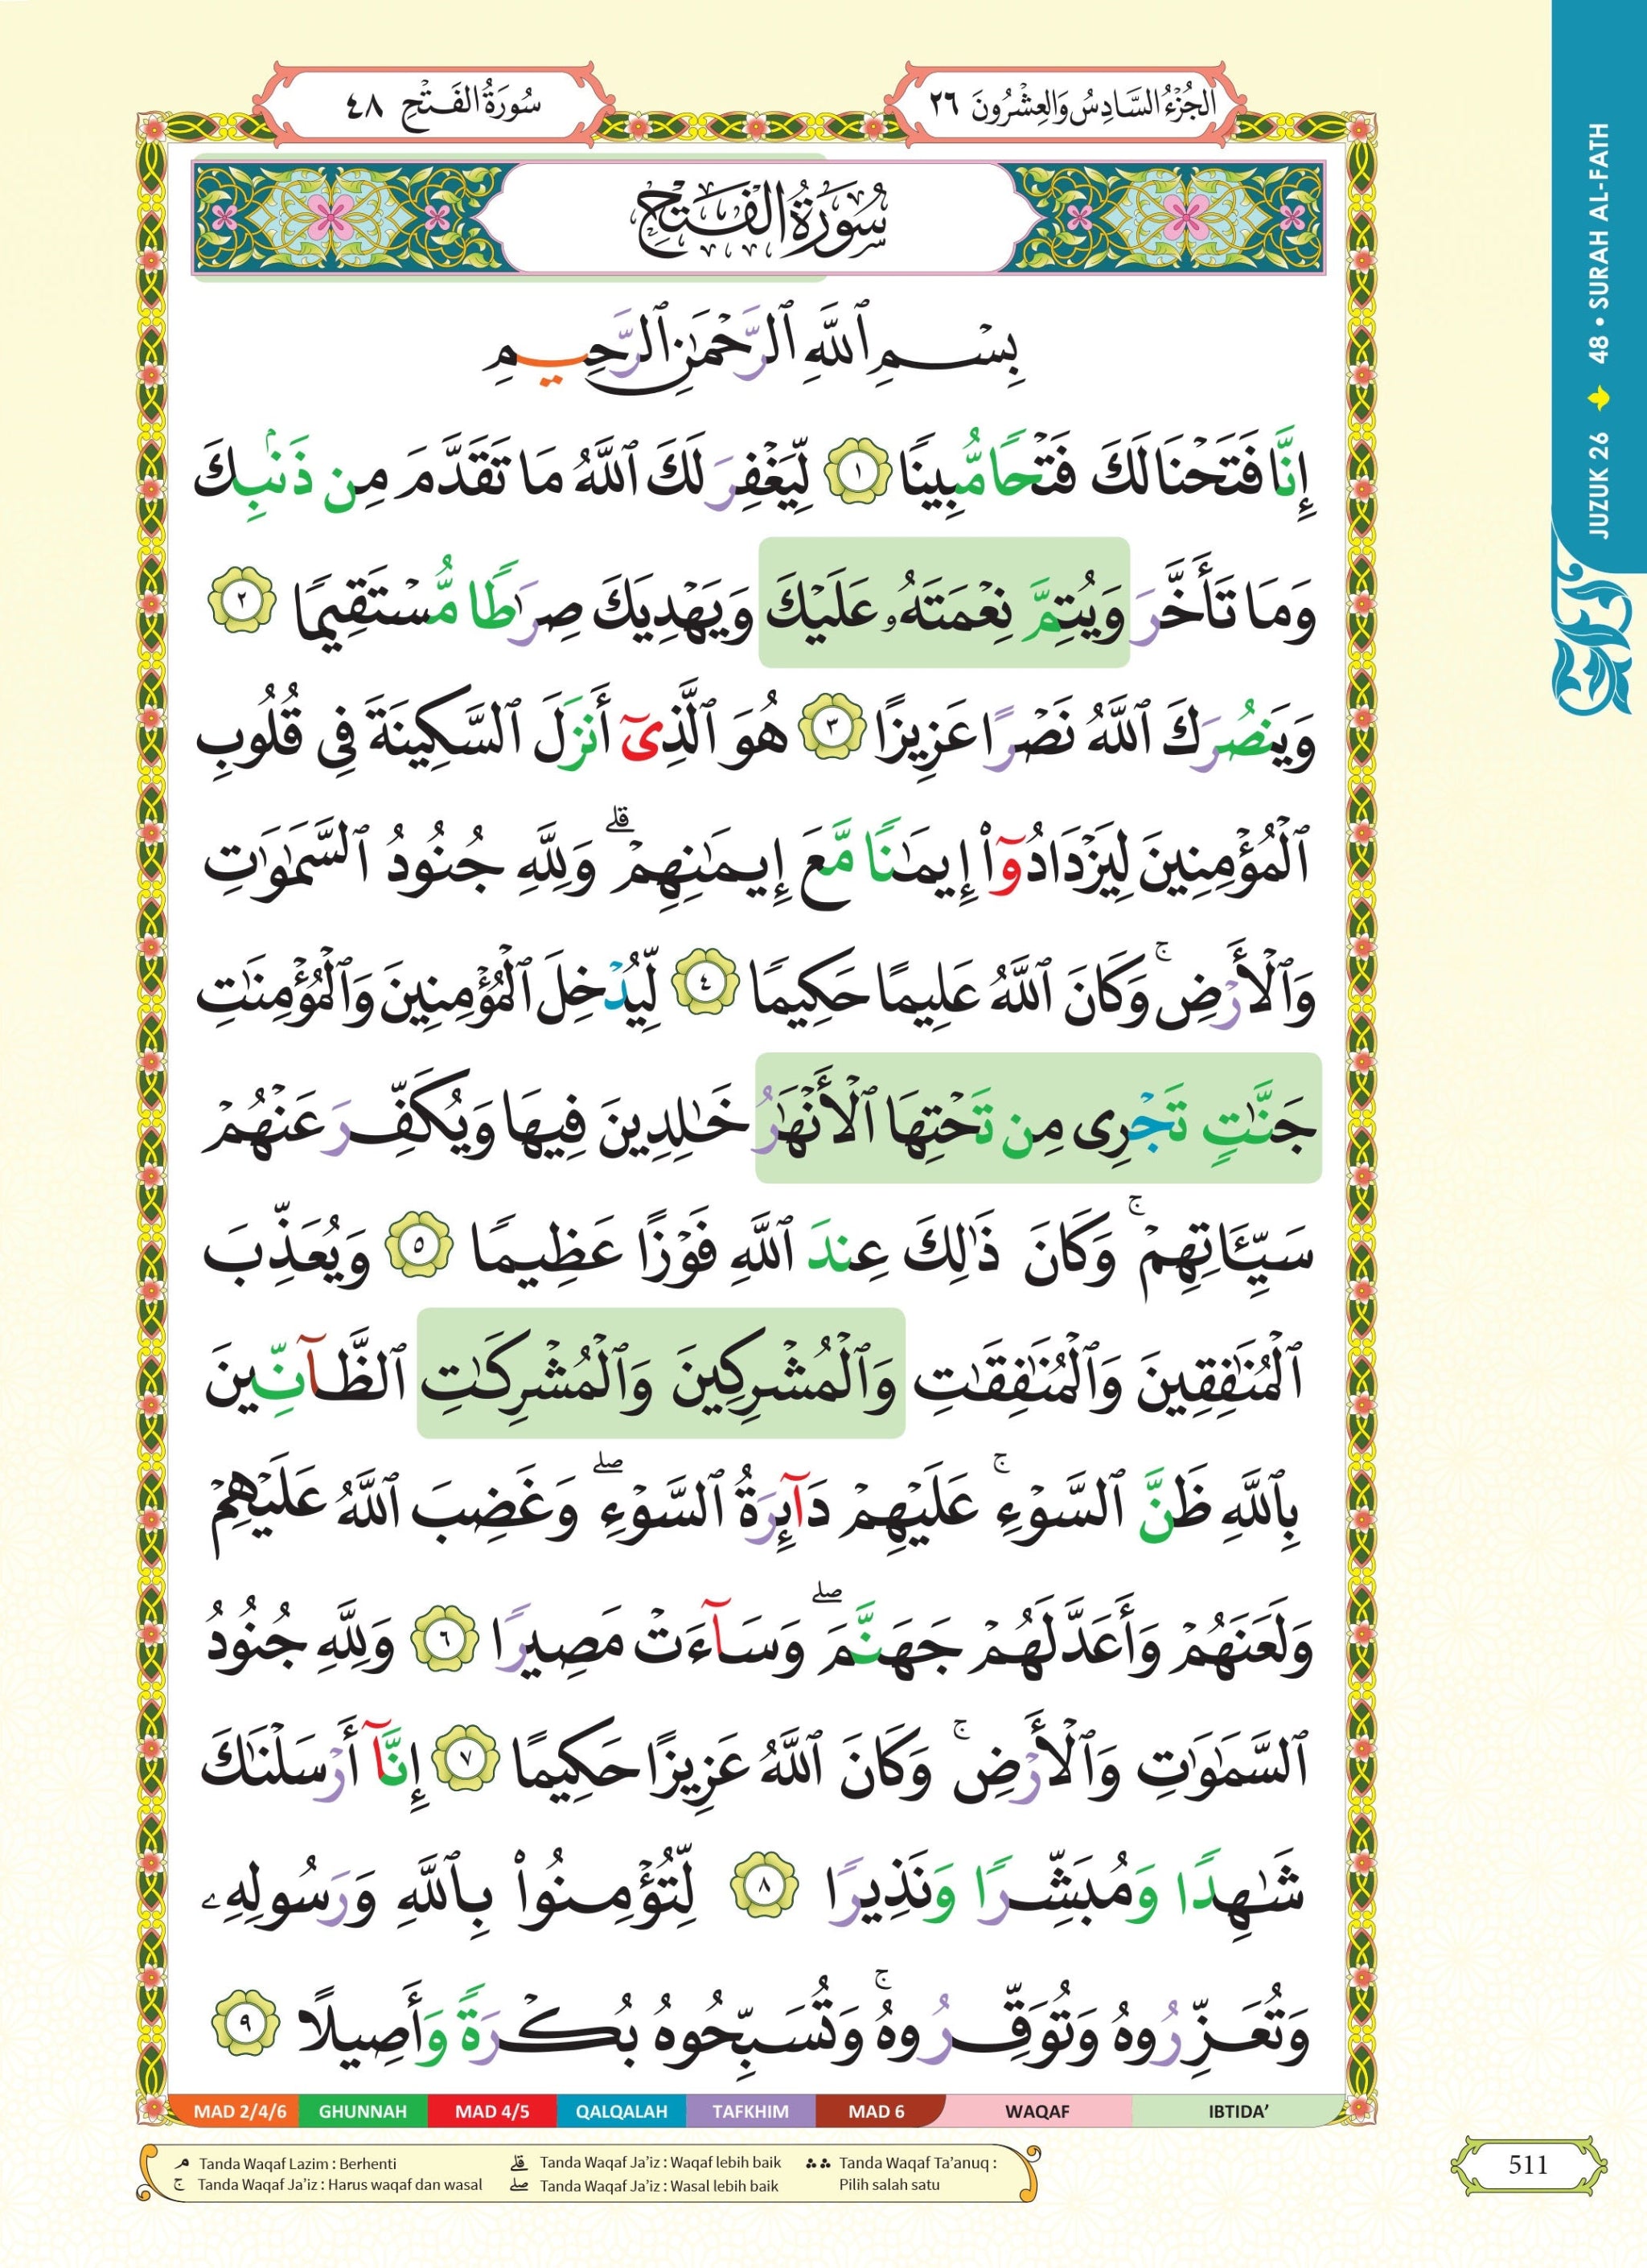 الجُزْءُ السَّادِسُ وَالعِشْرُونَ ٢٦
سُورَةُ الفَتْحِ ٤٨
JUZUK 26 48 • SURAH AL-FATH
سُورَةُ الفَتْحِ
بِسْمِ ٱللَّهِ ٱلرَّحْمَٰنِ ٱلرَّحِيمِ
إِنَّا فَتَحْنَا لَكَ فَتْحًا مُّبِينًا ١ لِّيَغْفِرَ لَكَ ٱللَّهُ مَا تَقَدَّمَ مِن ذَنۢبِكَ
وَمَا تَأَخَّرَ وَيُتِمَّ نِعْمَتَهُۥ عَلَيْكَ وَيَهْدِيَكَ صِرَٰطًا مُّسْتَقِيمًا ٢
وَيَنصُرَكَ ٱللَّهُ نَصْرًا عَزِيزًا ٣ هُوَ ٱلَّذِىٓ أَنزَلَ ٱلسَّكِينَةَ فِى قُلُوبِ
ٱلْمُؤْمِنِينَ لِيَزْدَادُوٓا۟ إِيمَٰنًا مَّعَ إِيمَٰنِهِمْ ۗ وَلِلَّهِ جُنُودُ ٱلسَّمَٰوَٰتِ
وَٱلْأَرْضِ ۚ وَكَانَ ٱللَّهُ عَلِيمًا حَكِيمًا ٤ لِّيُدْخِلَ ٱلْمُؤْمِنِينَ وَٱلْمُؤْمِنَٰتِ
جَنَّٰتٍ تَجْرِى مِن تَحْتِهَا ٱلْأَنْهَٰرُ خَٰلِدِينَ فِيهَا وَيُكَفِّرَ عَنْهُمْ
سَيِّـَٔاتِهِمْ ۚ وَكَانَ ذَٰلِكَ عِندَ ٱللَّهِ فَوْزًا عَظِيمًا ٥ وَيُعَذِّبَ
ٱلْمُنَٰفِقِينَ وَٱلْمُنَٰفِقَٰتِ وَٱلْمُشْرِكِينَ وَٱلْمُشْرِكَٰتِ ٱلظَّآنِّينَ
بِٱللَّهِ ظَنَّ ٱلسَّوْءِ ۚ عَلَيْهِمْ دَآئِرَةُ ٱلسَّوْءِ ۖ وَغَضِبَ ٱللَّهُ عَلَيْهِمْ
وَلَعَنَهُمْ وَأَعَدَّ لَهُمْ جَهَنَّمَ ۖ وَسَآءَتْ مَصِيرًا ٦ وَلِلَّهِ جُنُودُ
ٱلسَّمَٰوَٰتِ وَٱلْأَرْضِ ۚ وَكَانَ ٱللَّهُ عَزِيزًا حَكِيمًا ٧ إِنَّآ أَرْسَلْنَٰكَ
شَٰهِدًا وَمُبَشِّرًا وَنَذِيرًا ٨ لِّتُؤْمِنُوا۟ بِٱللَّهِ وَرَسُولِهِۦ
وَتُعَزِّرُوهُ وَتُوَقِّرُوهُ ۚ وَتُسَبِّحُوهُ بُكْرَةً وَأَصِيلًا ٩
MAD 2/4/6 GHUNNAH MAD 4/5 QALQALAH TAFKHIM MAD 6 WAQAF IBTIDA’
ۘ Tanda Waqaf Lazim : Berhenti ۗ Tanda Waqaf Ja’iz : Waqaf lebih baik ۛ ۛ Tanda Waqaf Ta’anuq :
ۚ Tanda Waqaf Ja’iz : Harus waqaf dan wasal ۖ Tanda Waqaf Ja’iz : Wasal lebih baik Pilih salah satu
511